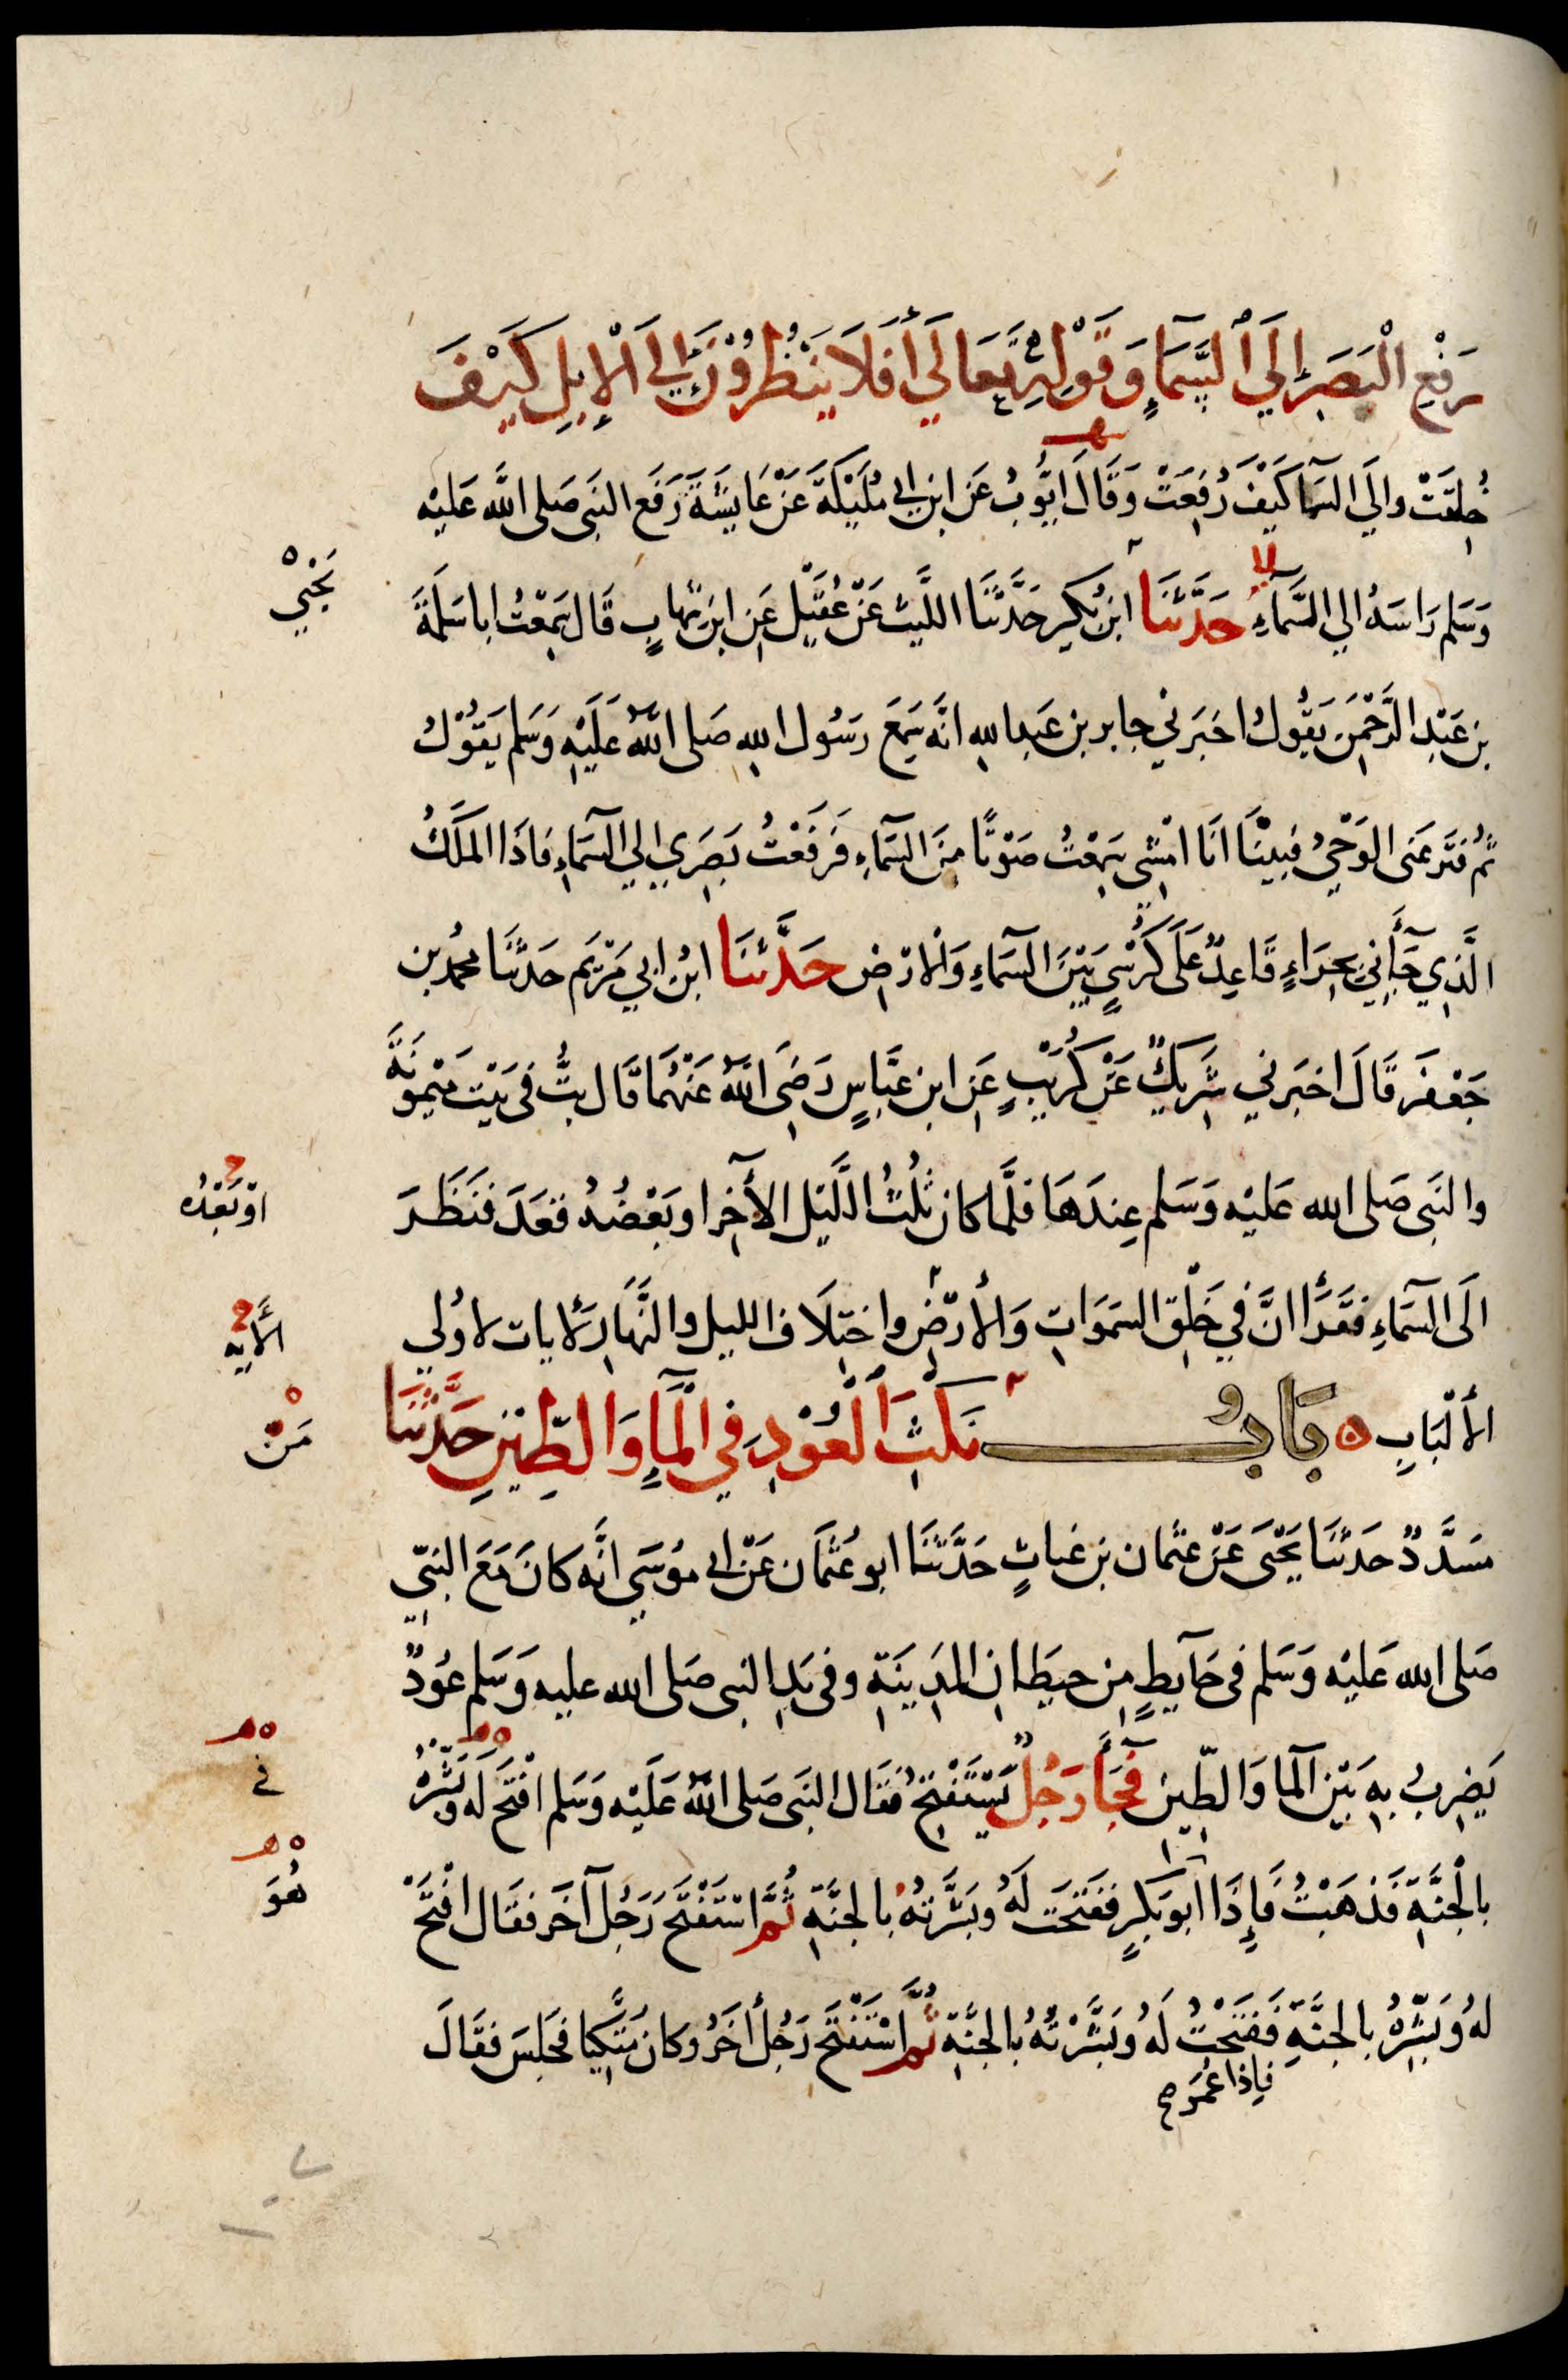 رَفْعِ الْبَصَرِ إِلَي السَّمَاءِ وَقَوْلِهِ تَعَالَي أَفَلَا يَنْظُرُوْنَ إِلَي الْإِبِلِ كَيْفَ
خُلِقَتْ والَي السَمآ كَيْفَ رُفِعَتْ وَقَالَ ايُّوبُ عَن ابن ابي مُلَيْكَةَ عَنْ عَايِشَةَ رَفَع النبَي صَلى اللَّه عَليْه
وَسَلم رَاسَهُ الي السَّمآءِ حَدَّثَنَا ابن بُكير حَدَّثَنَا اللَّيث عَنْ عُقَيْل عَنِ ابن شهابٍ قَال سَمِعْتُ اباسَلمَةَ
يَحْيي
بن عَبْدِ الرَّحْمٰنِ يَقُولُ اخبَرَني جابر بن عَبداللهِ انَّه سَمِعَ رسَُول اللهِ صَلى اللَّهُ عَلَيْهِ وَسَلم يَقُوْلُ
ثُمَّ فتَر عَنى الوَحْيُ فبيْنَا انَا امْشِي سَمِعْتُ صَوْتًا مِنَ السَّمآءِ فَرفَعْتُ بَصَرِي الي السَمآءِ فَاذَا المَلَكُ
الَّذِي جَآءَنِي بحِرَاءٍ قَاعِدٌ عَلَى كُرْسِيٍ بَيْنَ السَمآءِ وَالْارْضِ حَدَّثَنَا ابْنُ ابي مَرْيَم حَدثنَا محُمد بن
جَعْفَر قَالَ اخبَرني شَرِيكٌ عَنْ كُرَيْبٍ عَنِ ابن عَبَّاسٍ رَضِيَ اللَّهُ عَنْهُمَا قَال بتُّ في بَيْت مَيْمُونَةَ
والنَبَي صَلى الله عَليْه وَسَلم عِندَهَا فلَّما كان ثلُثُ اللَّيْل الآخِر اوبَعْضُهُ قعَدَ فنَظَرَ
اوْبَعْدُه
الَى السَمآءِ فَقَرَأَ انَّ فِي خَلْقِ السَمَوَاتِ وَالأرْضِ واخْتِلَاف الليل والنَّهَارِ لأيات لاوُلي
الأَيَه
الألْبَابِ بَابُ نَكْتِ الْعُوْدِ فِي الْمَآءِ وَالطِّيْنِ حَدَّثَنَا
مَنْ
مسَدَّدٌ حَدثنَا يَحْيَى عَنْ عثمَان بن غياثٍ حَدَّثنَا ابو عُثْمَان عَنْ ابي مُوسَى انَّه كانَ مَعَ النبيّ
صَلى الله عَليْه وَسَلم في حَآيطٍ مِن حيطانِ المَدِينَةِ وفي يَدِ النبي صَلى الله عليه وَسَلم عُودٌ
يَضرِبُ بِهِ بَيْن المآ وَالطِّينِ فَجَآءَ رَجُلٌ يَسْتَفْتِحُ فقَال النبَي صَلى اللَّهُ عَلَيْه وَسَلم افْتَحْ لَه وَبَشِّرْهُ
في
بالْجنَّةِ فَذهَبْتُ فَإِذَا ابُو بَكرٍ ففَتَحَت لَهُ وبَشَّرْتُهُ بالجنَّةِ ثُمَّ اسْتَفْتَحَ رَجُل آخَر فقَال افْتَحْ
هُوَ
لهُ وَبَشِّرْهُ بالجنَّةِ فَفَتَحْتُ لَهُ وَبَشَّرْتُهُ بالجنَّةِ ثُمَّ اسْتَفْتَحَ رَجُل أخَرُ وكان مُتَّكِيا فجَلسَ فقَالَ
فإِذَا عُمَر صح